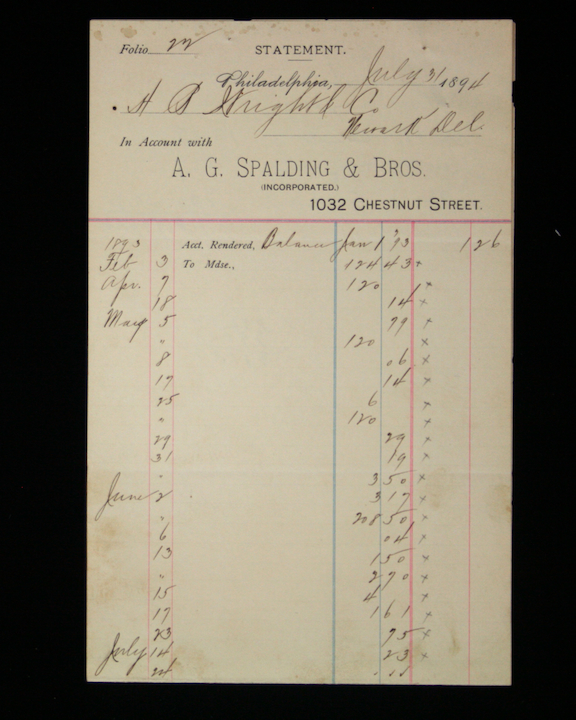 Folio
STATEMENT.
Philadelphia, July 31 1894
Co
Newark Del.
In Account with
A. G. SPALDING & BROS.
(INCORPORATED.)
1032 CHESTNUT STREET.
1893 Acct. Rendered, Balance Jan 1 '93 126
Feb 3 To Mdse., 124 43 x
Apr. 7 120 x
18 14 x
May 5 99 x
" 120 x
8 06 x
17 14 x
25 6 x
" 120 x
29 29 x
31 19 x
" 3 50 x
June 2 3 17 x
" 208 50 x
6 04 x
13 1 50 x
" 2 70 x
15 4 x
17 1 61 x
23 75 x
July 14 23 x